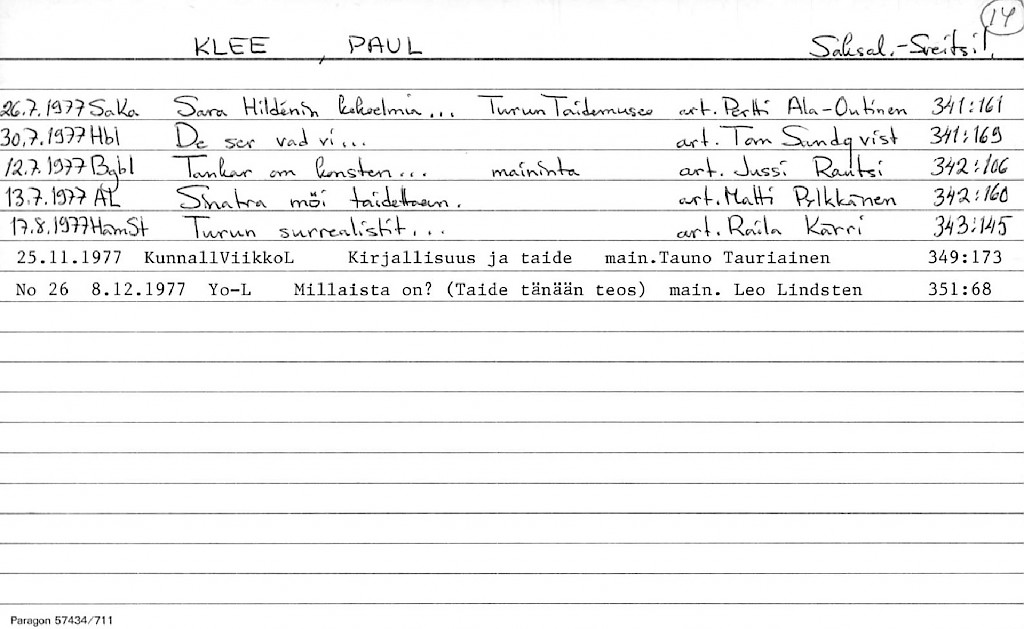 14
KLEE, PAUL Saksal.-Sveitsil.
26.7.1977 SaKa Sara Hildénin kokoelmia... Turun Taidemuseo art. Pertti Ala-Outinen 341:161
30.7.1977 Hbl De ser vad vi... art. Tom Sandqvist 341:169
12.7.1977 Bgbl Tankar om konsten... maininta art. Jussi Rautsi 342:106
13.7.1977 AL Sinatra möi taidettaan. art. Matti Pylkkänen 342:160
17.8.1977 HämSt Turun surrealistit... art. Raila Kärri 343:145
25.11.1977 KunnallViikkoL Kirjallisuus ja taide main.Tauno Tauriainen 349:173
No 26 8.12.1977 Yo-L Millaista on? (Taide tänään teos) main. Leo Lindsten 351:68
Paragon 57434/711